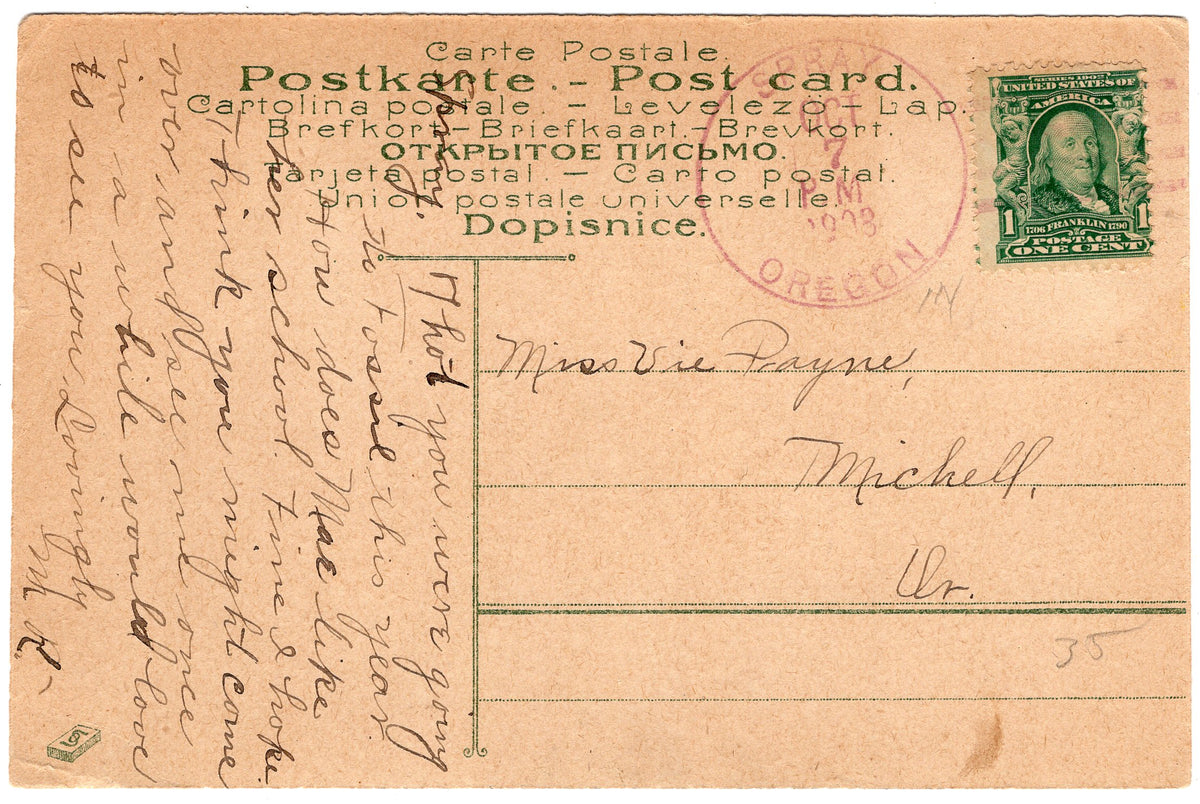 Carte Postale.
Postkarte. - Post card.
Cartolina postale. - Levelező - Lap.
Brefkort - Briefkaart. - Brevkort.
ОТКРЫТОЕ ПИСЬМО.
Tarjeta postal. - Carto postal.
Union postale universelle.
Dopisnice.
SPRAY
OCT
7
P M
1908
OREGON
SERIES 1902
UNITED STATES OF
AMERICA
1706 FRANKLIN 1790
1 POSTAGE 1
ONE CENT
Miss Vie Payne,
Mickell,
Or.
35
Spray.
Thot you were going
to Fossil this year
How does Mae like
her school. Fine I hope.
I think you might come
over and see me once
in a while would love
to see you Lovingly
M. R. -